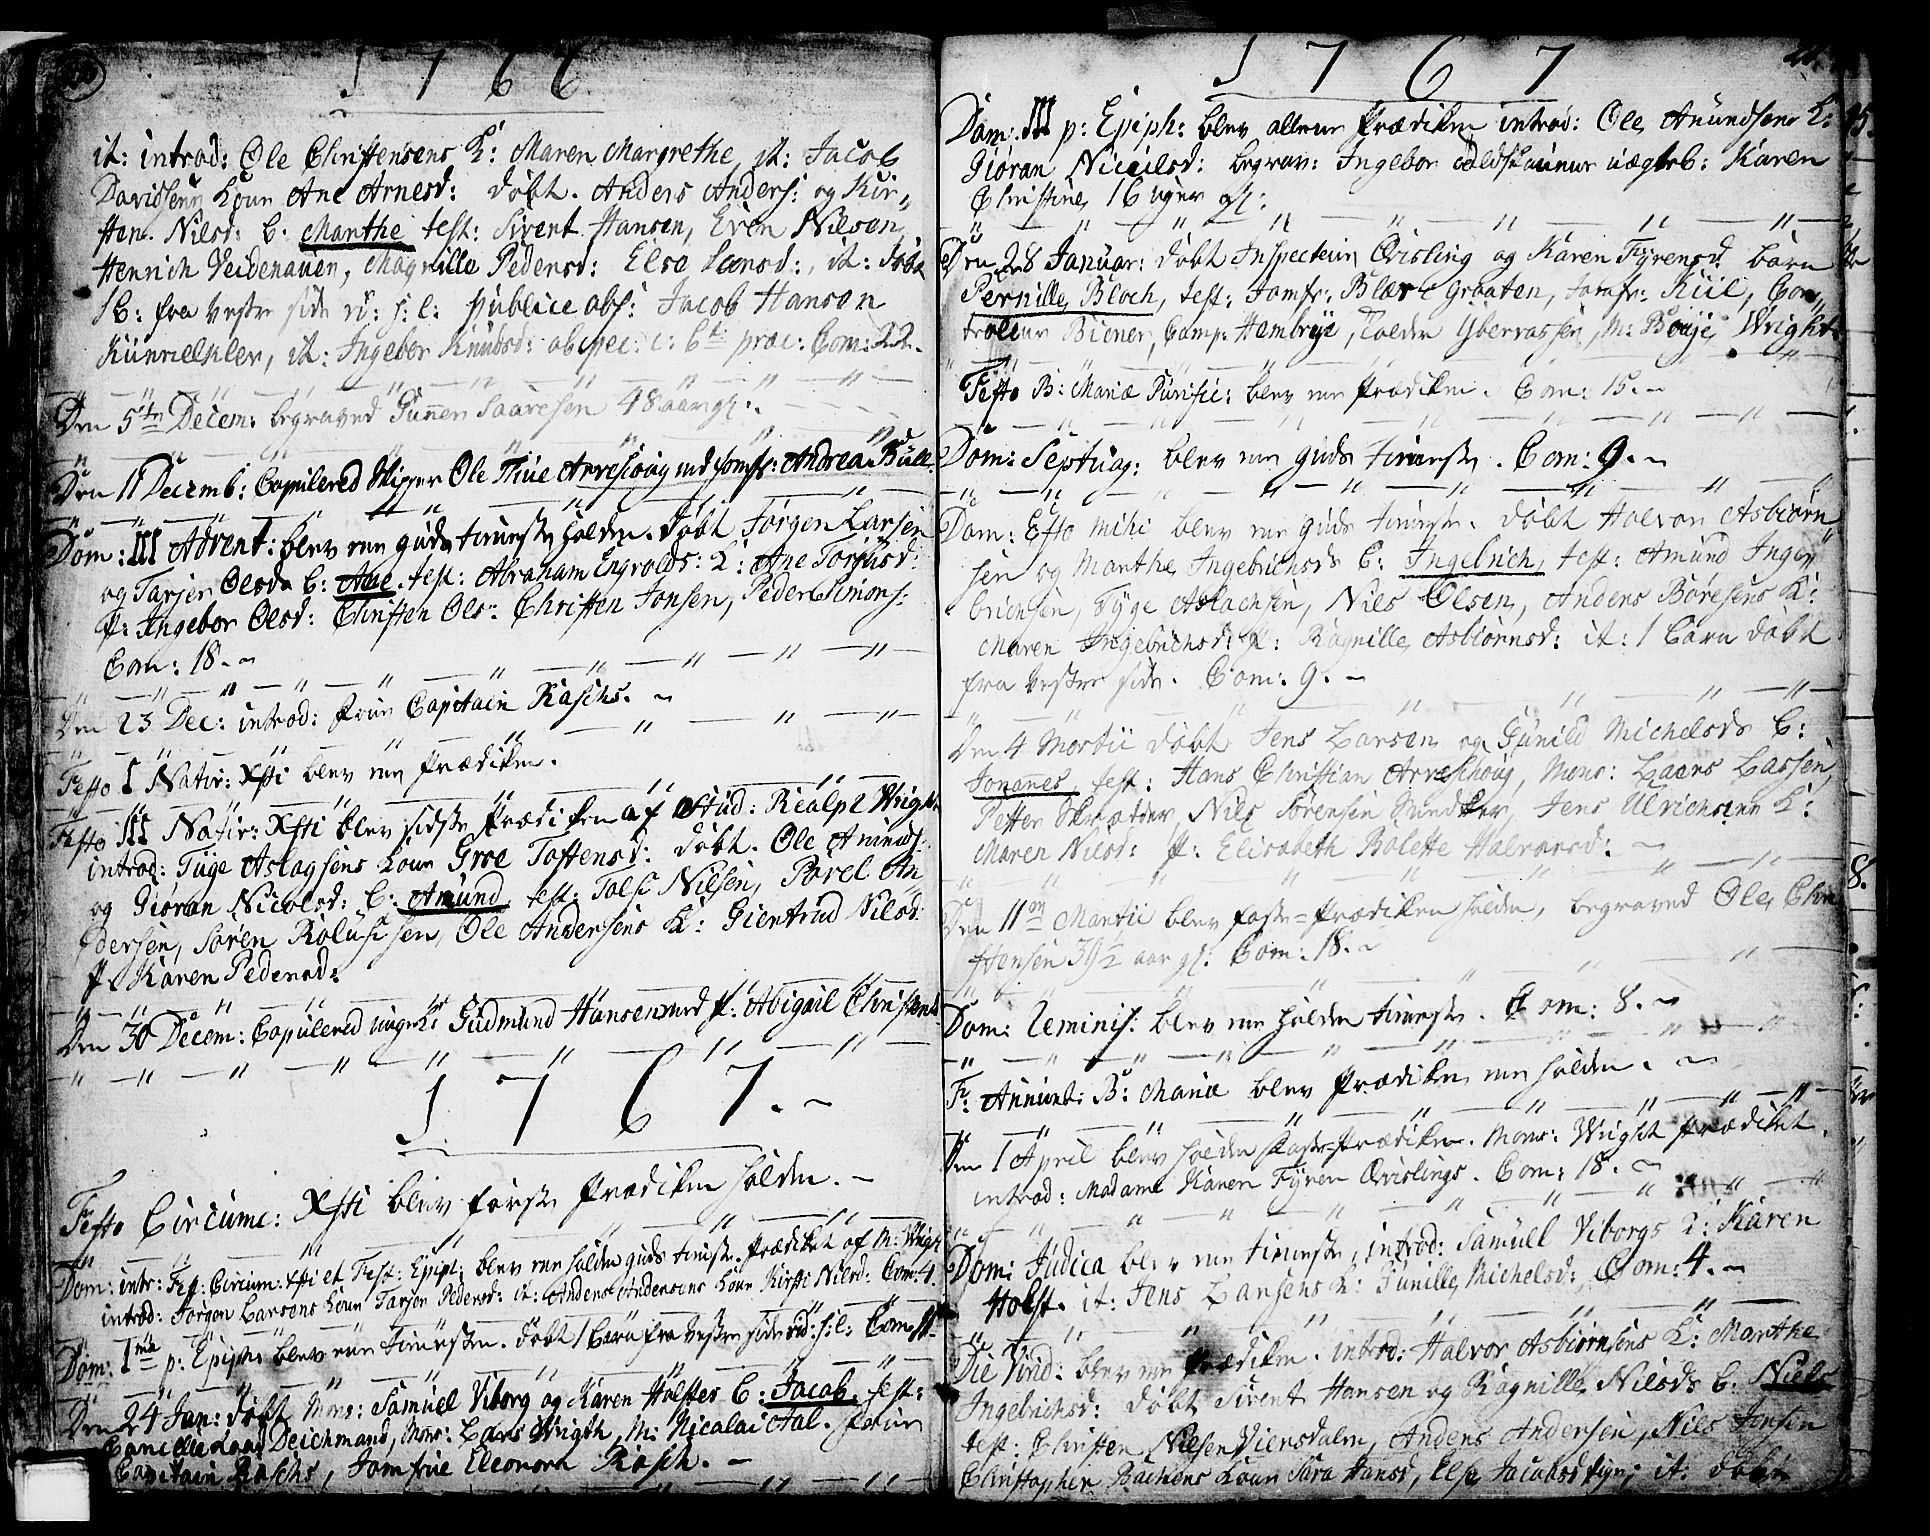 1766
it: introd: Ole Christensens K: Maren Margrethe, it: Jacob
Davidsens Koun Ane Arnesd: døbt. Anders Anders: og Kir„
sten Nilsd: b. Marthe test: Sivert Hansen, Even Nilsen,
Henrich Veidenauen, Magnille Pedersd: Else Larsd:, it: døbt
1 b: fra Vestre side
publice abs: Jacob Hanson
it: Ingebor Knudsd: præc: Com: 22.
Den 5te Decem: begraved Gunner Saaresen 48 aar gl.
Den 11 Decemb: Copulered Skipper Ole Thue Arveschoug med Jomfr: Andrea Bull.
Dom: III Advent: blev en guds tieneste holden. døbt Jørgen Larsen
og Tarjer Olsds b: Ane. test: Abraham Engvolds: K: Ane Torjusd:
P: Ingebor Olsd: Christen Ols: Christen Jonsen, Peder Simons:
Com: 18.
Den 23 Dec: introd: frue Capitain Raschs.
Festo I Nativ: Xsti blev en Prædiken.
Festo III Nativ: Xsti blev sidste Prædiken af Stud: Wright
introd: Tüge Aslagsens Koun Groe Tostensd: døbt. Ole Aniunds:
og Giøran Nicolsd: b: Amund, test: Nilsen, Povel An
dersen, Søren Ole Andersens K: Giertrud Nilsd:
P. Karen Pedersd:
Den 30 Decem: Copulered Gudmund Hansen med P: Abigail Christensd:
1767.
Festo Circumc: Xsti blev første Prædiken holden.
Dom: intr: Fest: Circum: Xsti et Fest: Epiph: blev en holden guds tieneste. Prædiket af M: Wright
introd: Jørgen Larsens Koun Tarjer Pedersd: it: Anders Andersens Koun Kirsti Nilsd: Com: 4.
Dom: Ima p: Epiph: blev en tieneste. døbt 1 barn fra Vestre side Com: 11.
Den 24 Jan: døbt Mons: Samuel Viborg og Karen Holsters b: Jacob. test:
Cancelieraad Deichmand, Mons: Lars Wrigth, M: Nicolai Aal. frue
Capitain Raschs, Jomfrue Eleonora Rasch.
1767
Dom: III p: Epiph: blev alleene Prædiken introd: Ole Anundsens K:
Giøran Nicolsd: begrav: Ingebor Karen
Christine 16 uger gl:
Den 28 Januar: døbt Inspecteur Qvisling og Karen Fyrensd. barn
Pernille Bloch, test: Jomfr: Græten, Jomfr: Kiil, Con„
trolleur Biener, Camp: Hembrye, Tolder M: Wright.
Festo B: Mariæ Purific: blev en Prædiken. Com: 15.
Dom: Septuag: blev en guds tieneste. Com: 9.
Dom: Esto mihi blev en guds tieneste. døbt Halvor Asbiørn„
sen og Marthe Ingebrichsds b: Ingebrich, test: Amund Inge„
brichsen, Tyge Aslachsen, Nils Olsen, Anders Børesens K:
Maren Ingebrichsd: P: Ragnille Asbiørnsd: it: 1 barn døbt
fra Vestre side. Com: 9.
Den 4 Martii døbt Jens Larsen og Gunild Michelsds b:
Johanes test: Hans Christian Arveschoug, Mons: Laers Lassen,
Petter Skrædder, Nils Sørensen Jens Ulrichsens K:
Maren Nilsd: P: Elisabeth Bolette Halvorsd:
Den 11 Martii blev faste-Prædiken holden, begraved Ole Chri
stensen 39½ aar gl: Com: 18.
Dom: Reminis: blev en holden tieneste. Com: 8.
F: Anunt: B: Mariæ blev Prædiken en holden.
Den 1 April blev holden Faste-Prædiken. Mons: Wright prædiket.
introd: Madame Karen Fyren Qvislings. Com: 18.
Dom: Judica blev en tieneste, introd: Samuel Viborgs K: Karen
Holst. it: Jens Larsens K: Gunille Michelsd: Com: 4.
Die Virid: blev en Prædiken. introd: Halvor Asbiørnsens K: Marthe
Ingebrichsd: døbt Sivert Hansen og Ragnille Nilsds b: Niels
test: Christen Nilsen Anders Andersen, Nils Jensen
Christopher Bachens Koun Sara Hansd, Else Jacobsd it: døbt